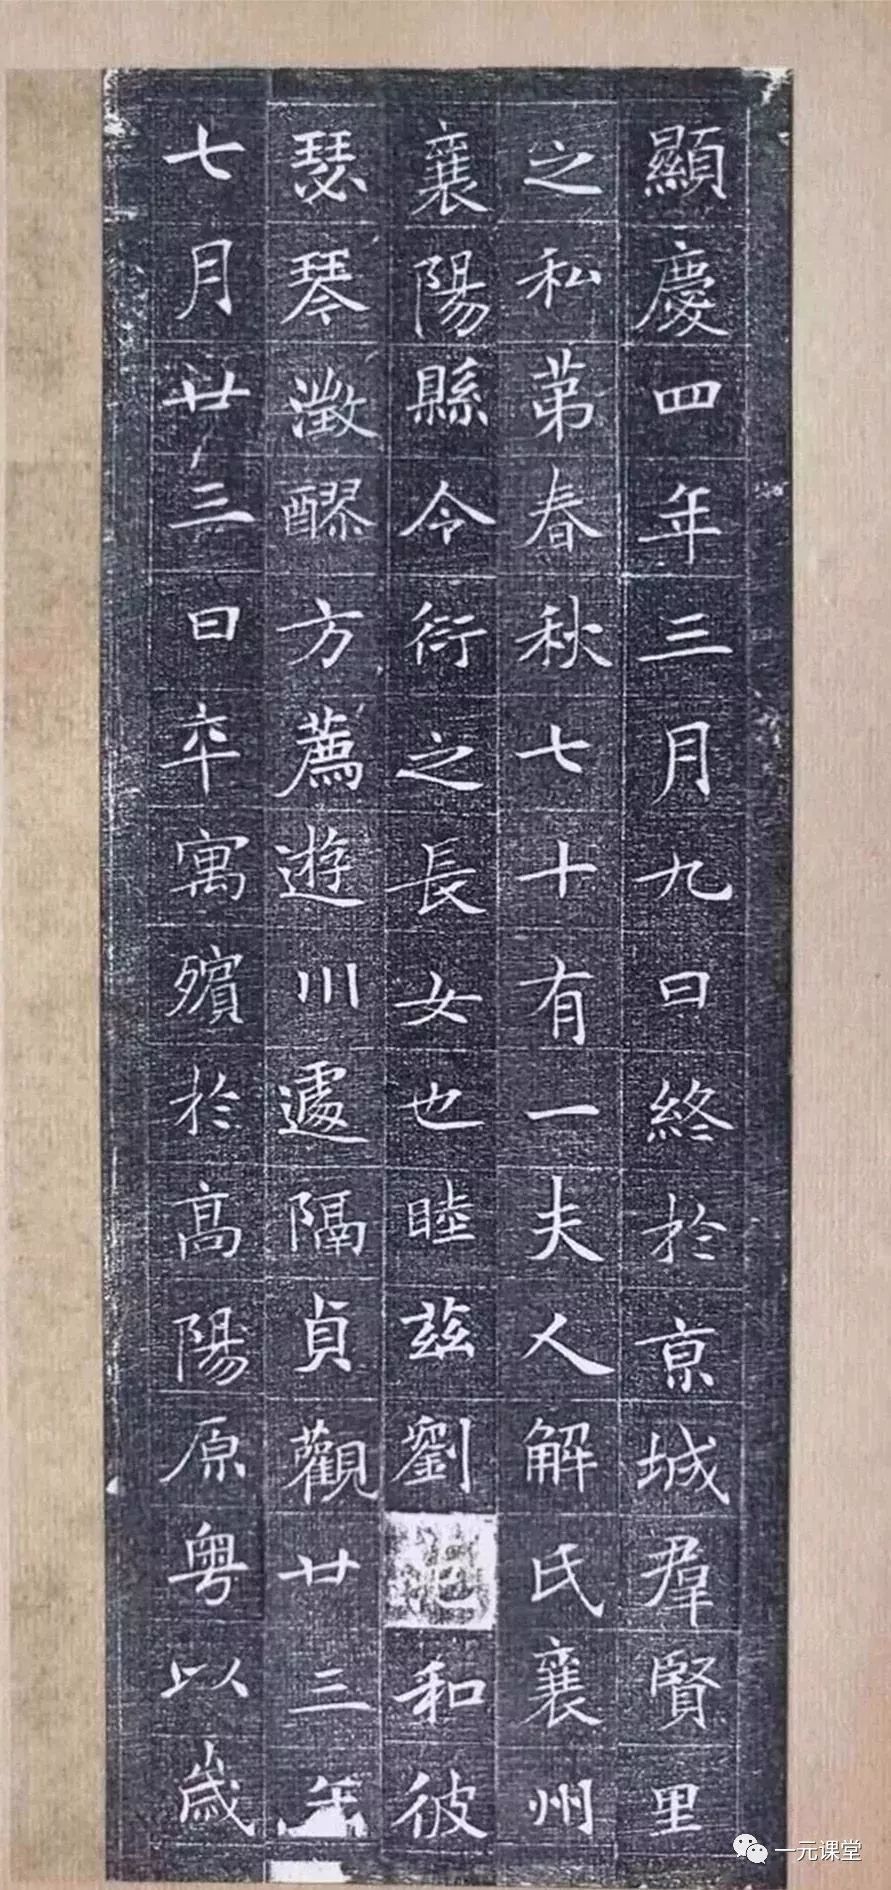 顯慶四年三月九日終於京城群賢里
之私苐春秋七十有一夫人解氏襄州
襄陽縣令衍之長女也睦茲劉和彼
瑟琴澂醪方薦遊川遽隔貞觀廿三年
七月廿三日卒寓殯於高陽原粵以歲
一元课堂